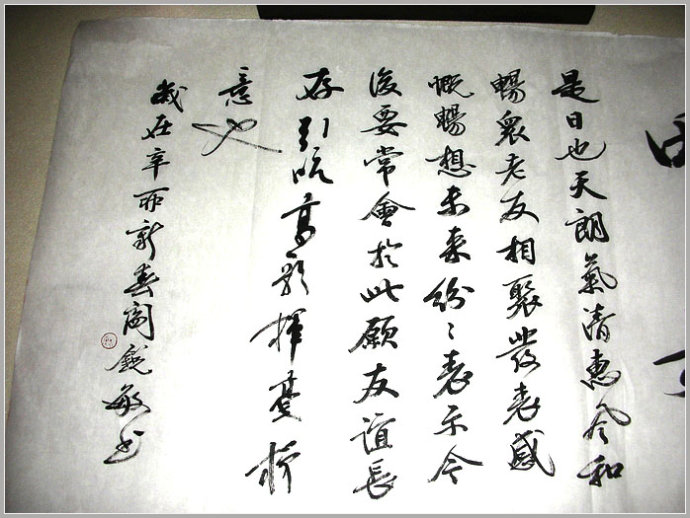 是日也天朗氣清惠風和
暢眾老友相聚發表感
慨暢想未来紛〻表示今
後要常會於此願友誼長
存引吭高歌揮毫抒
意也
歲在辛丽新春閣鋭敏书